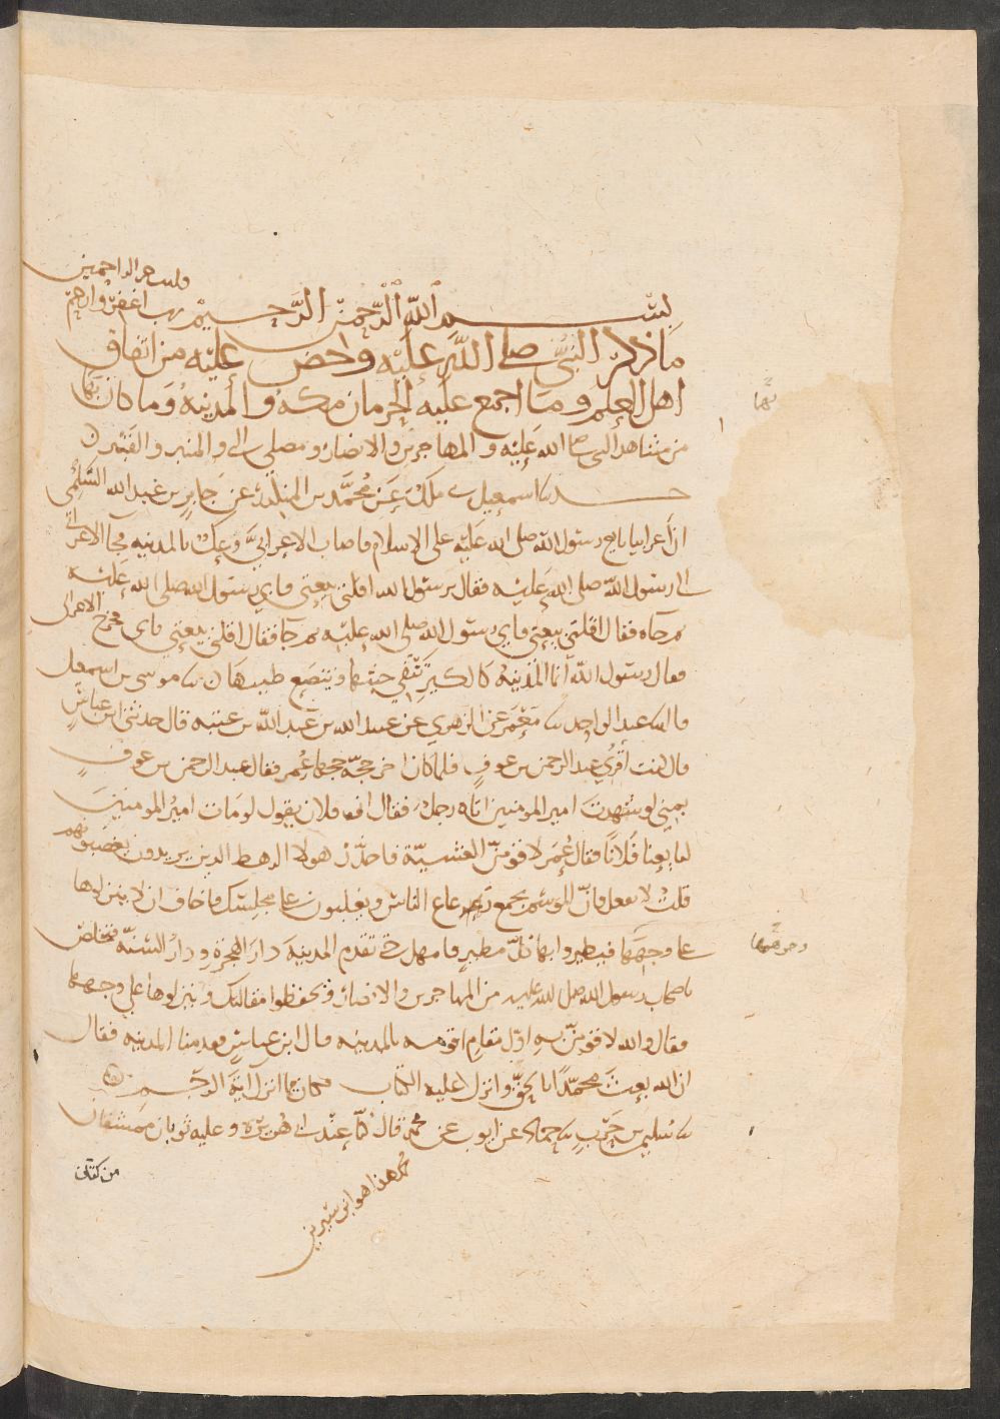 وانت ارحم الراحمين
بسم الله الرحمن الرحيم رب اغفر وارحم
ما ذكر النبي صلى الله عليه وحض عليه من اتفاق
اهل العلم وما اجمع عليه الحرمان مكة والمدينة وما كان بها
بهما
من مشاهد النبي صلى الله عليه والمهاجرين والانصار ومصلى النبي والمنبر والقبر
حدثنا اسمعيل حدثني ملك عن محمد بن المنكدر عن جابر بن عبد الله السلمي
ان اعرابيا بايع رسول الله صلى الله عليه على الاسلام فاصاب الاعرابي وعك بالمدينة فجا الاعرابي
الى رسول الله صلى الله عليه فقال يرسول الله اقلني بيعتي فابى رسول الله صلى الله عليه
ثم جاه فقال اقلني بيعتي فابى رسول الله صلى الله عليه ثم جا فقال اقلني بيعتي فابى فخرج الاعرابي
فقال رسول الله انما المدينة كالكير تنفي خبثها وينصع طيبها حدثنا موسى بن اسمعيل
قال حدثنا عبد الواحد حدثنا معمر عن الزهري عن عبيد الله بن عبد الله بن عتبة قال حدثني ابن عباس
قال كنت اقرئ عبد الرحمن بن عوف فلما كان اخر حجة حجها عمر فقال عبد الرحمن بن عوف
بمنى لو شهدت امير المومنين اتاه رجل فقال ان فلان يقول لو مات امير المومنين
لبايعنا فلانا فقال عمر لاقومن العشية فاحذر هولا الرهط الذين يريدون يغصبونهم
قلت لا تفعل فان الموسم يجمع رعاع الناس ويغلبون على مجلسك فاخاف ان لا ينزلوها
على وجهها فيطيروا بها كل مطير فامهل حتى تقدم المدينة دار الهجرة ودار السنة فتخلص
وجوهها
باصحاب رسول الله صلى الله عليه من المهاجرين والانصار ويحفظوا مقالتك وينزلوها على وجهها
فقال والله لاقومن به اول مقام اقومه بالمدينة قال ابن عباس فقدمنا المدينة فقال
ان الله بعث محمدا بالحق وانزل عليه الكتاب فكان فيما انزل اية الرجم
حدثنا سليمن بن حرب حدثنا حماد عن ايوب عن محمد قال كنا عند ابي هريرة وعليه ثوبان ممشقان
من كتان
محمد هذا هو ابن سيرين